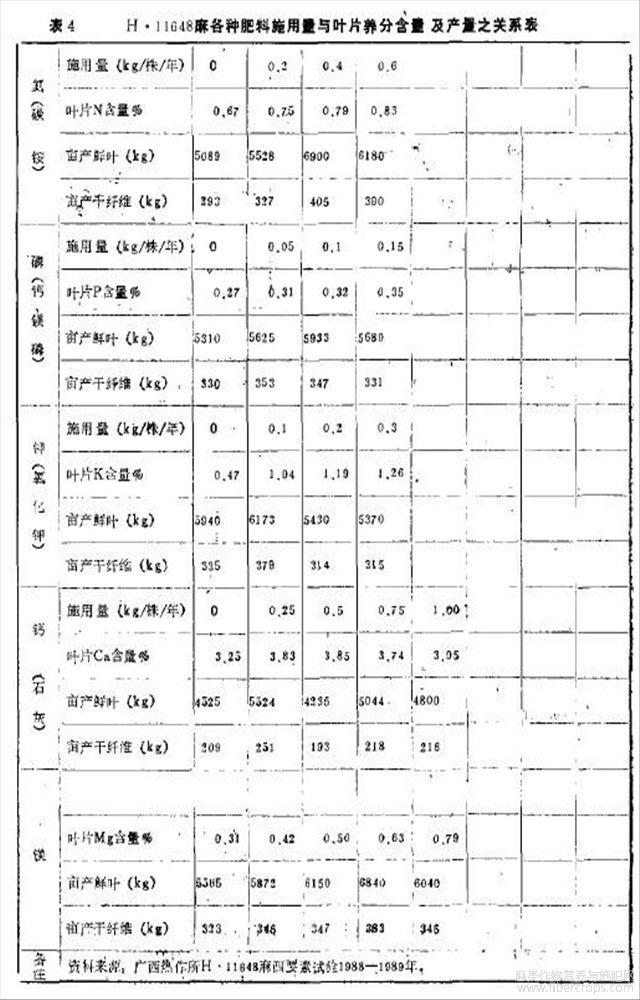 表4 H·11648麻各种肥料施用量与叶片养分含量及产量之关系表
氮(碳铵)
施用量(kg/株/年) 0 0.2 0.4 0.6
叶片N含量% 0.67 0.75 0.79 0.83
亩产鲜叶(kg) 5089 5528 6900 6180
亩产干纤维(kg) 293 327 405 390
磷(钙镁磷)
施用量(kg/株/年) 0 0.05 0.1 0.15
叶片P含量% 0.27 0.31 0.32 0.35
亩产鲜叶(kg) 5310 5625 5933 5680
亩产干纤维(kg) 330 353 347 331
钾(氯化钾)
施用量(kg/株/年) 0 0.1 0.2 0.3
叶片K含量% 0.47 1.04 1.19 1.26
亩产鲜叶(kg) 5940 6173 5430 5370
亩产干纤维(kg) 335 379 314 315
钙(石灰)
施用量(kg/株/年) 0 0.25 0.5 0.75 1.00
叶片Ca含量% 3.25 3.83 3.85 3.74 3.95
亩产鲜叶(kg) 4525 5524 4235 5044 4800
亩产干纤维(kg) 209 251 193 218 216
镁
叶片Mg含量% 0.31 0.42 0.50 0.63 0.79
亩产鲜叶(kg) 5565 5872 6150 6840 6040
亩产干纤维(kg) 323 346 347 383 345
备注 资料来源:广西热作所H·11648麻四要素试验1988—1989年。
麻类作物营养与施肥网
www.fibercrops.com